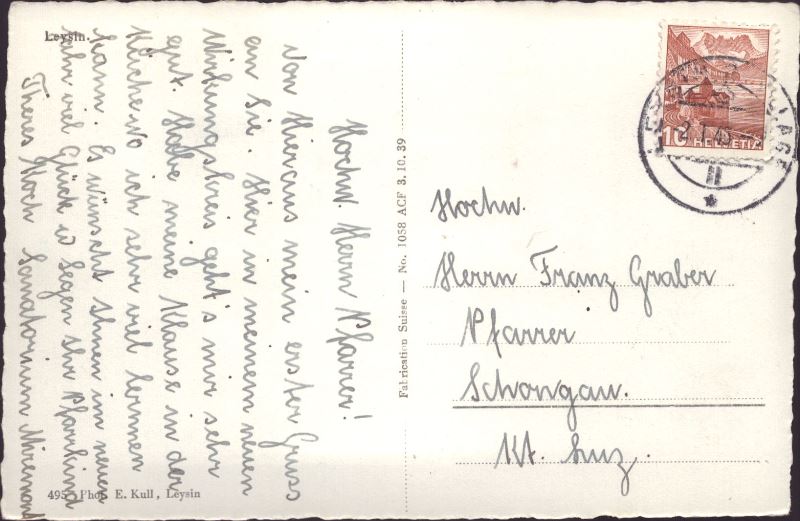 Leysin.
Hochw. Herrn Pfarrer!
Von Hieraus mein erster Gruss
an Sie. Hier in meinem neuen
Wirkungskreis geht's mir sehr
gut. Habe meine Klause in der
Küche wo ich sehr viel lernen
kann. Es wünscht Ihnen im neuen
Jahr viel Glück u Segen Ihr Pfarrkind
Theres Koch Sanatorium Miremont
495 Phot. E. Kull, Leysin
Fabrication Suisse — No. 1058 ACF 3.10.39
10 HELVETIA
LEYSIN VILLAGE
Hochw.
Herrn Franz Graber
Pfarrer
Schongau.
Kt. Luz.